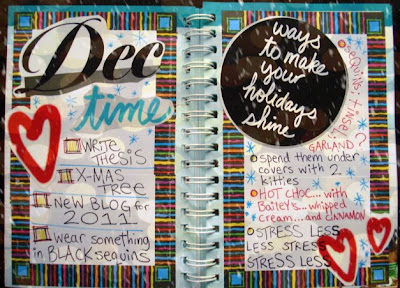 Dec
time
WRITE
THESIS
X-MAS
TREE
NEW BLOG for
2011
wear something
in BLACK sequins
ways
to make
your
holidays
shine
SEQUINS! TINSEL!
GARLAND?
spend them under
covers with 2
kitties
HOT CHOC... with
Bailey's... whipped
cream.... and CINNAMON
STRESS LESS
LESS STRESS
STRESS LESS